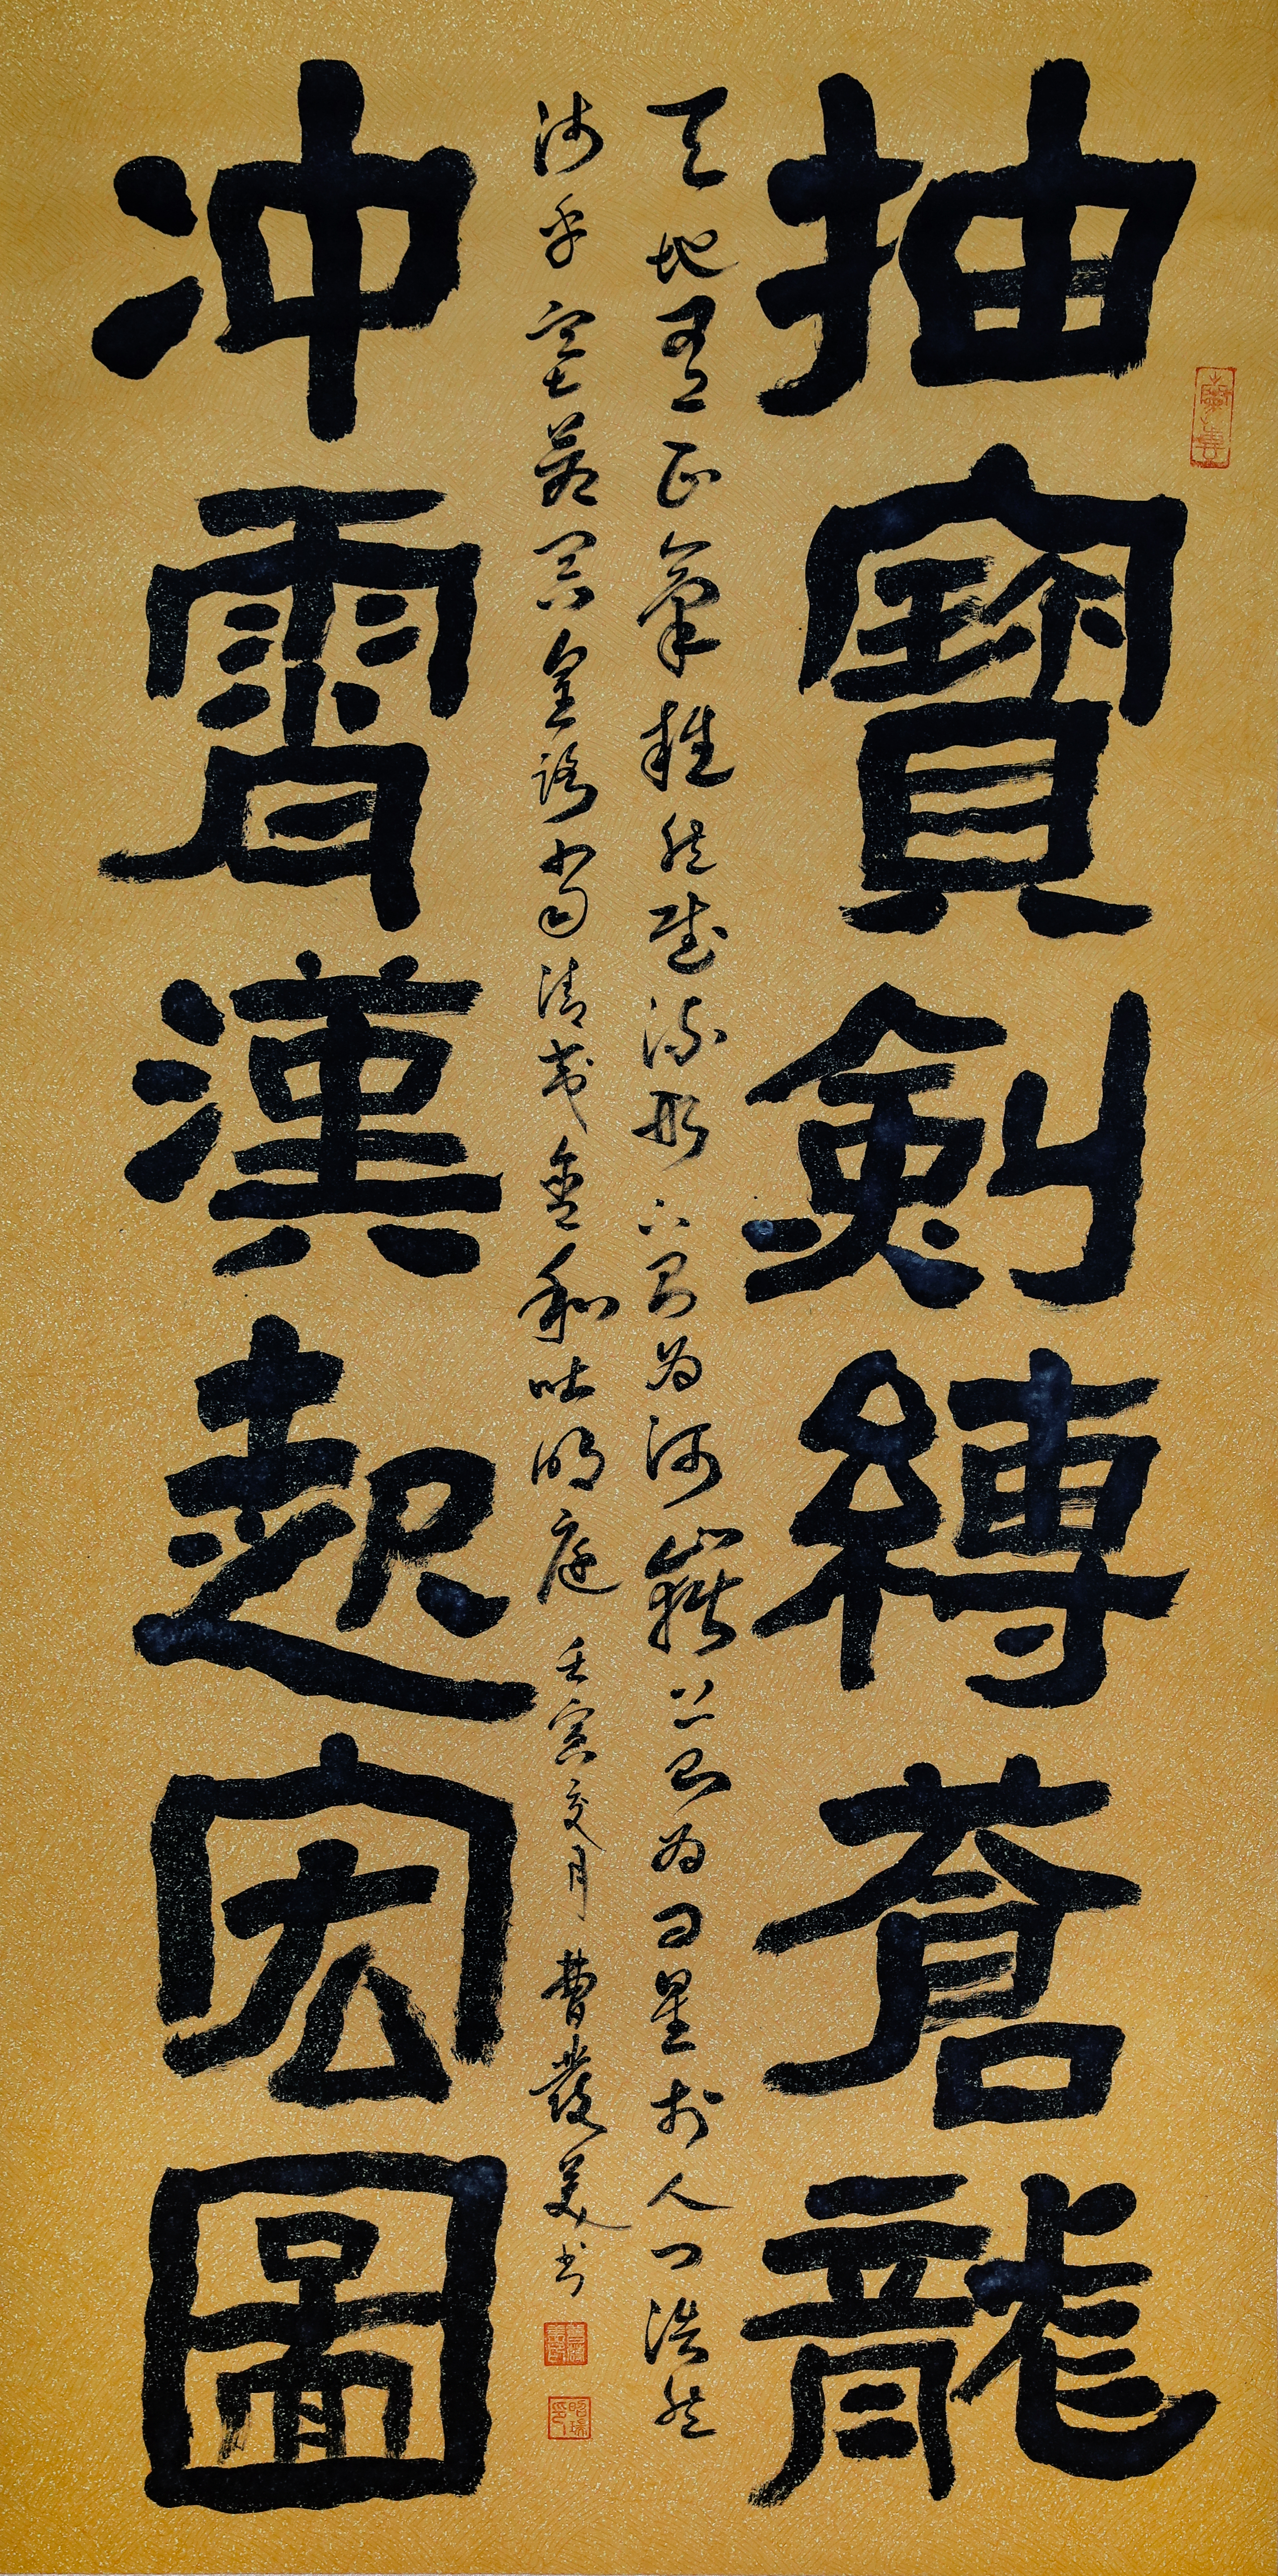 抽寶劍縛蒼龍
天地有正氣雜然賦流形下則為河嶽上則為日星於人曰浩然
沛乎塞蒼冥皇路當清夷含和吐明庭壬寅夏月曹發美书
冲霄漢起宏圖